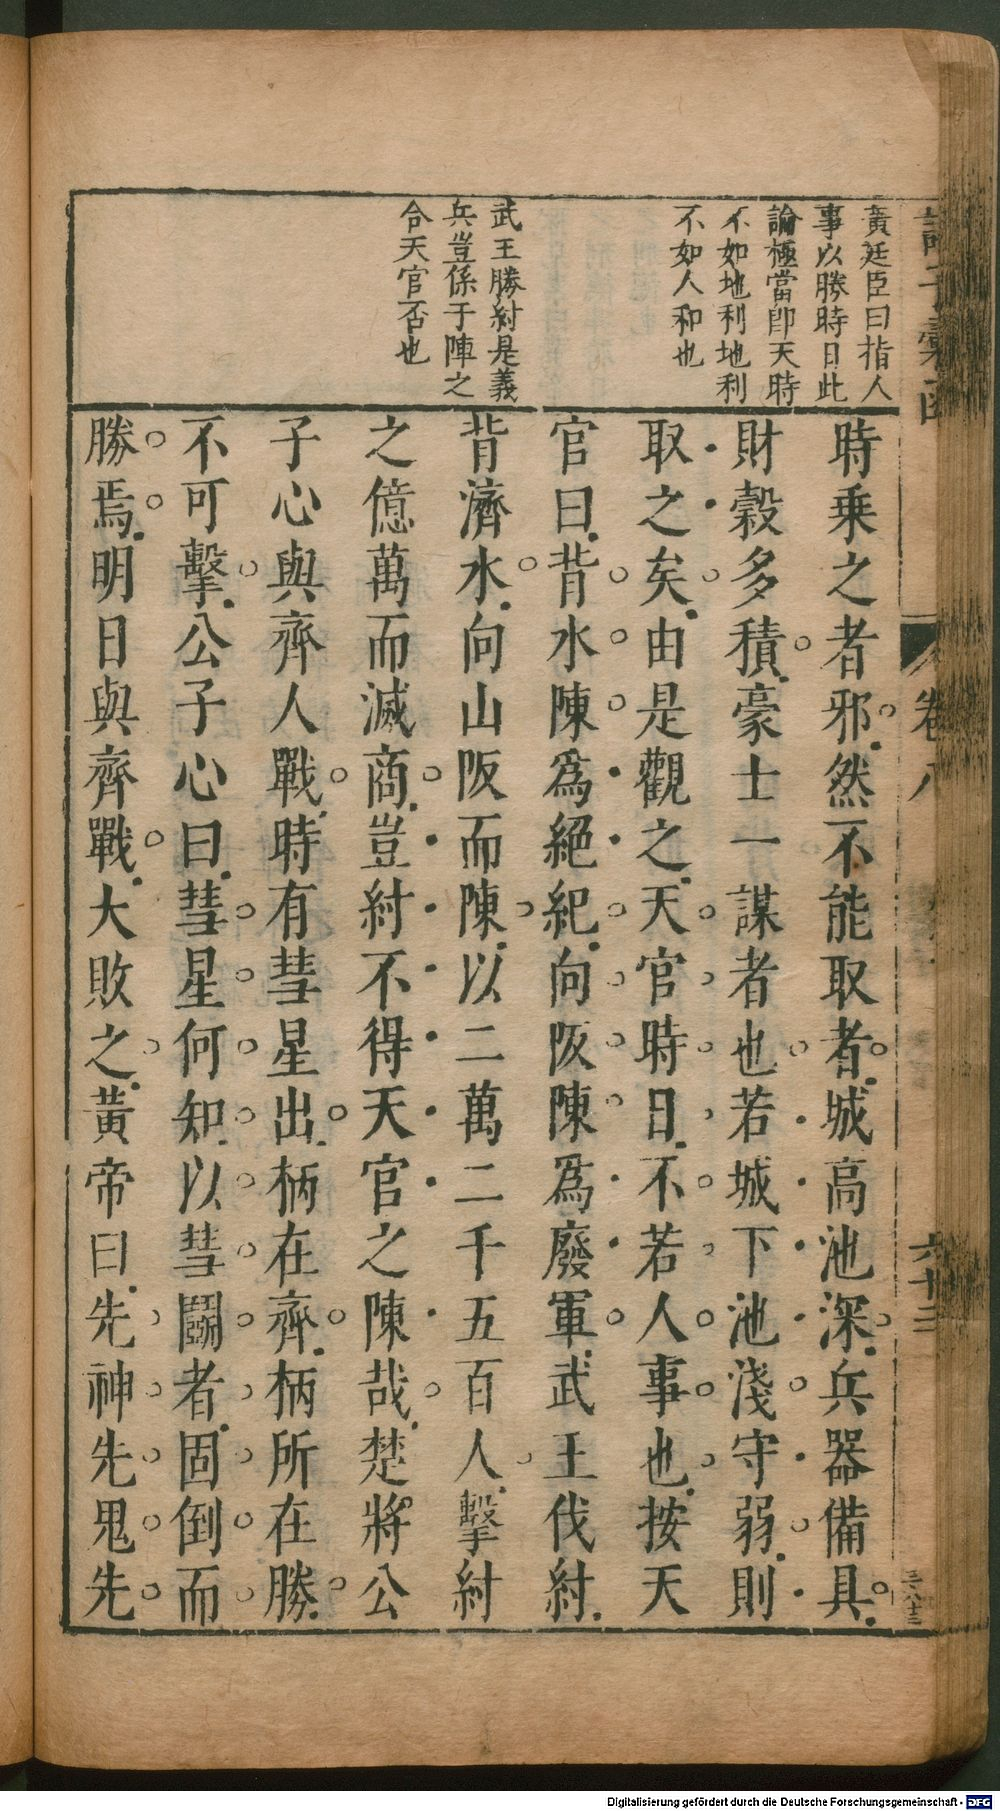 黃廷臣曰指人
事以勝時日此
論極當卽天時
不如地利地利
不如人和也
武王勝紂是義
兵豈係于陣之
合天官否也
時乘之者邪然不能取者城高池深兵器備具
財穀多積豪士一謀者也若城下池淺守弱則
取之矣由是觀之天官時日不若人事也按天
官曰背水陳爲絕紀向阪陳爲廢軍武王伐紂
背濟水向山阪而陳以二萬二千五百人擊紂
之億萬而滅商豈紂不得天官之陳哉楚將公
子心與齊人戰時有彗星出柄在齊柄所在勝
不可擊公子心曰彗星何知以彗鬭者固倒而
勝焉明日與齊戰大敗之黃帝曰先神先鬼先
卷八
六十三
Digitalisierung gefördert durch die Deutsche Forschungsgemeinschaft - DFG